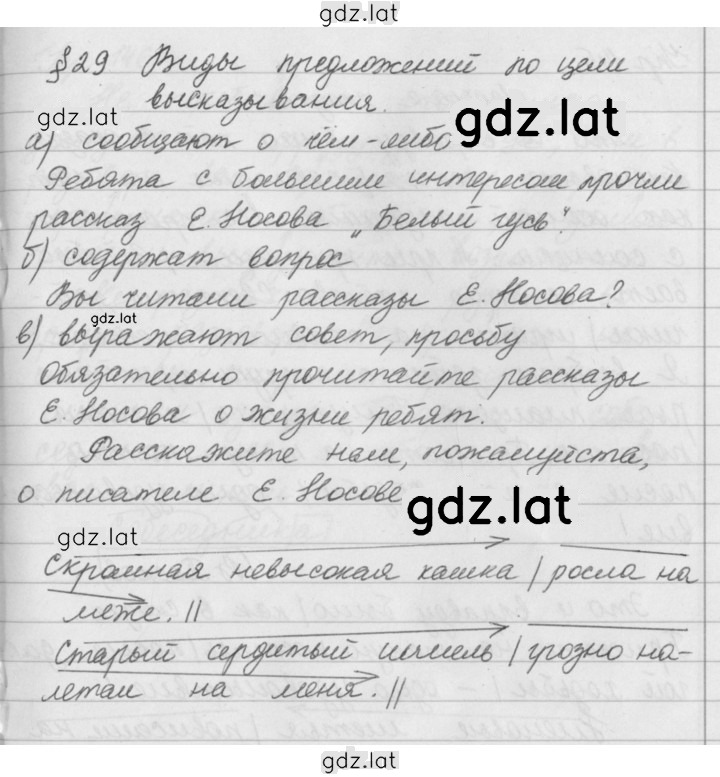 gdz.lat
§29 Виды предложений по цели
высказывания.
gdz.lat
gdz.lat
а) сообщают о чём-либо
Ребята с большим интересом прочли
рассказ Е. Носова „Белый гусь".
б) содержат вопрос
Вы читали рассказы Е. Носова?
gdz.lat
в) выражают совет, просьбу
Обязательно прочитайте рассказы
Е. Носова о жизни ребят.
Расскажите нам, пожалуйста,
о писателе Е. Носове
gdz.lat
gdz.lat
Скромная невысокая кашка | росла на
меже. ||
Старый сердитый шмель | грозно на-
летал на меня. ||
gdz.lat